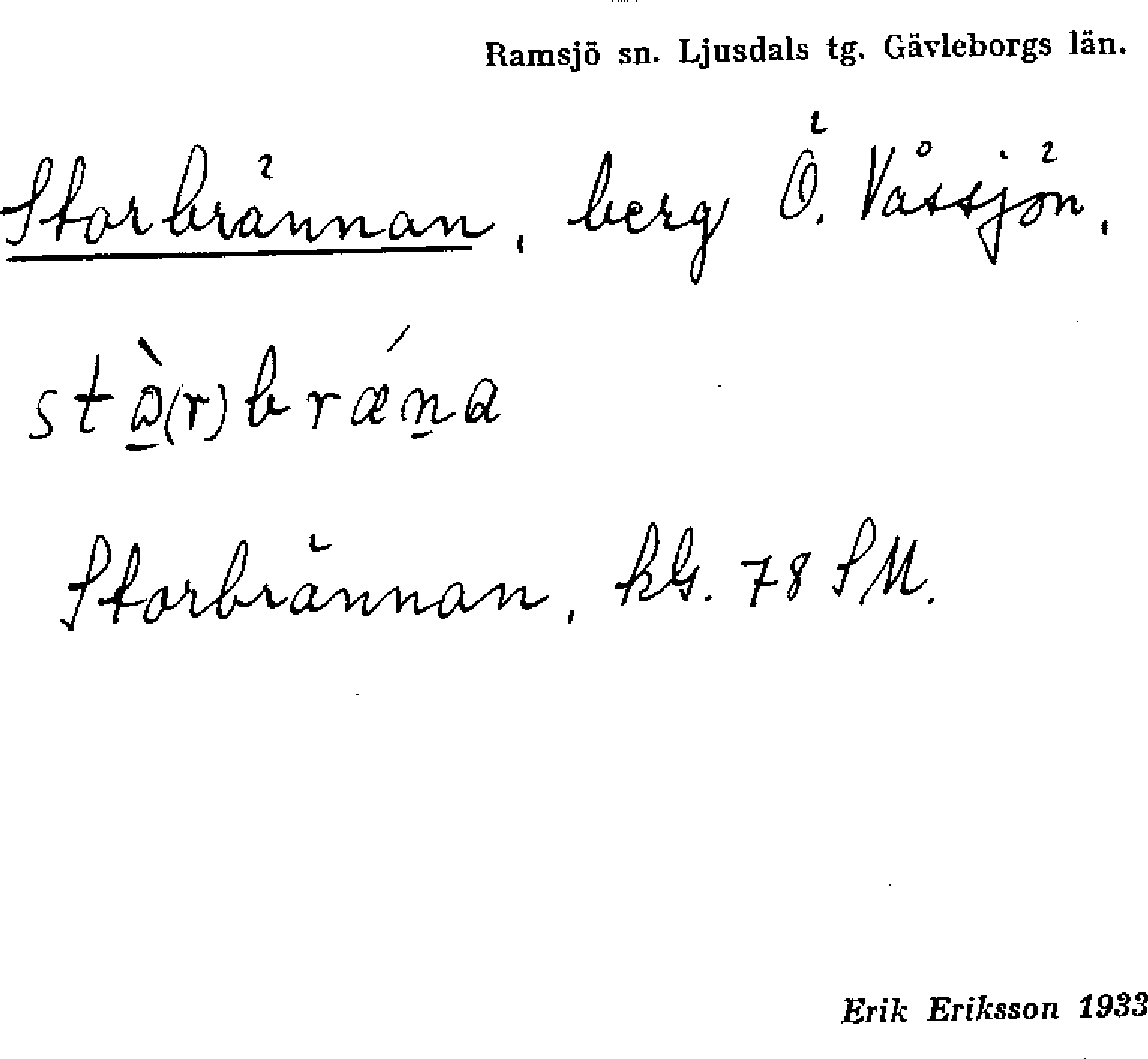 Ramsjö sn. Ljusdals tg. Gävleborgs län.
Storbrännan, berg Ö. Våssjön.
stò̱(r)brǽṉa
Storbrännan, kG. 78 SM.
Erik Eriksson 1933